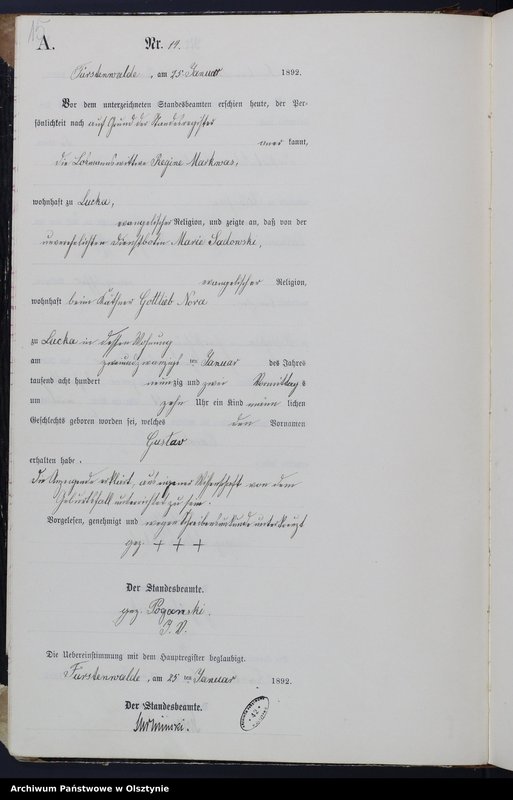 15
A.
Nr. 14.
Fürstenwalde, am 25 Januar 1892.
Vor dem unterzeichneten Standesbeamten erschien heute, der Per-
sönlichkeit nach auf Grund der Standesregister
aner kannt,
die Losmannswittwe Regine Markwas,
wohnhaft zu Lucka,
evangelischer Religion, und zeigte an, daß von der
unverehelichten Dienstbotin Marie Sadowski,
evangelischer Religion,
wohnhaft beim Käthner Gottlieb Nora
zu Lucka in dessen Wohnung
am zweiundzwanzigsten Januar des Jahres
tausend acht hundert neunzig und zwei Vormittags
um zehn Uhr ein Kind männlichen
Geschlechts geboren worden sei, welches den Vornamen
Gustav
erhalten habe.
Die Anzeigende erklärt, aus eigener Wissenschaft von dem
Geburtsfall unterrichtet zu sein.
Vorgelesen, genehmigt und wegen Schreibensunkunde unterkreuzt
gez. + + +
Der Standesbeamte.
gez.
Die Uebereinstimmung mit dem Hauptregister beglaubigt.
Fürstenwalde, am 25 ten Januar 1892.
Der Standesbeamte.
Archiwum Państwowe w Olsztynie